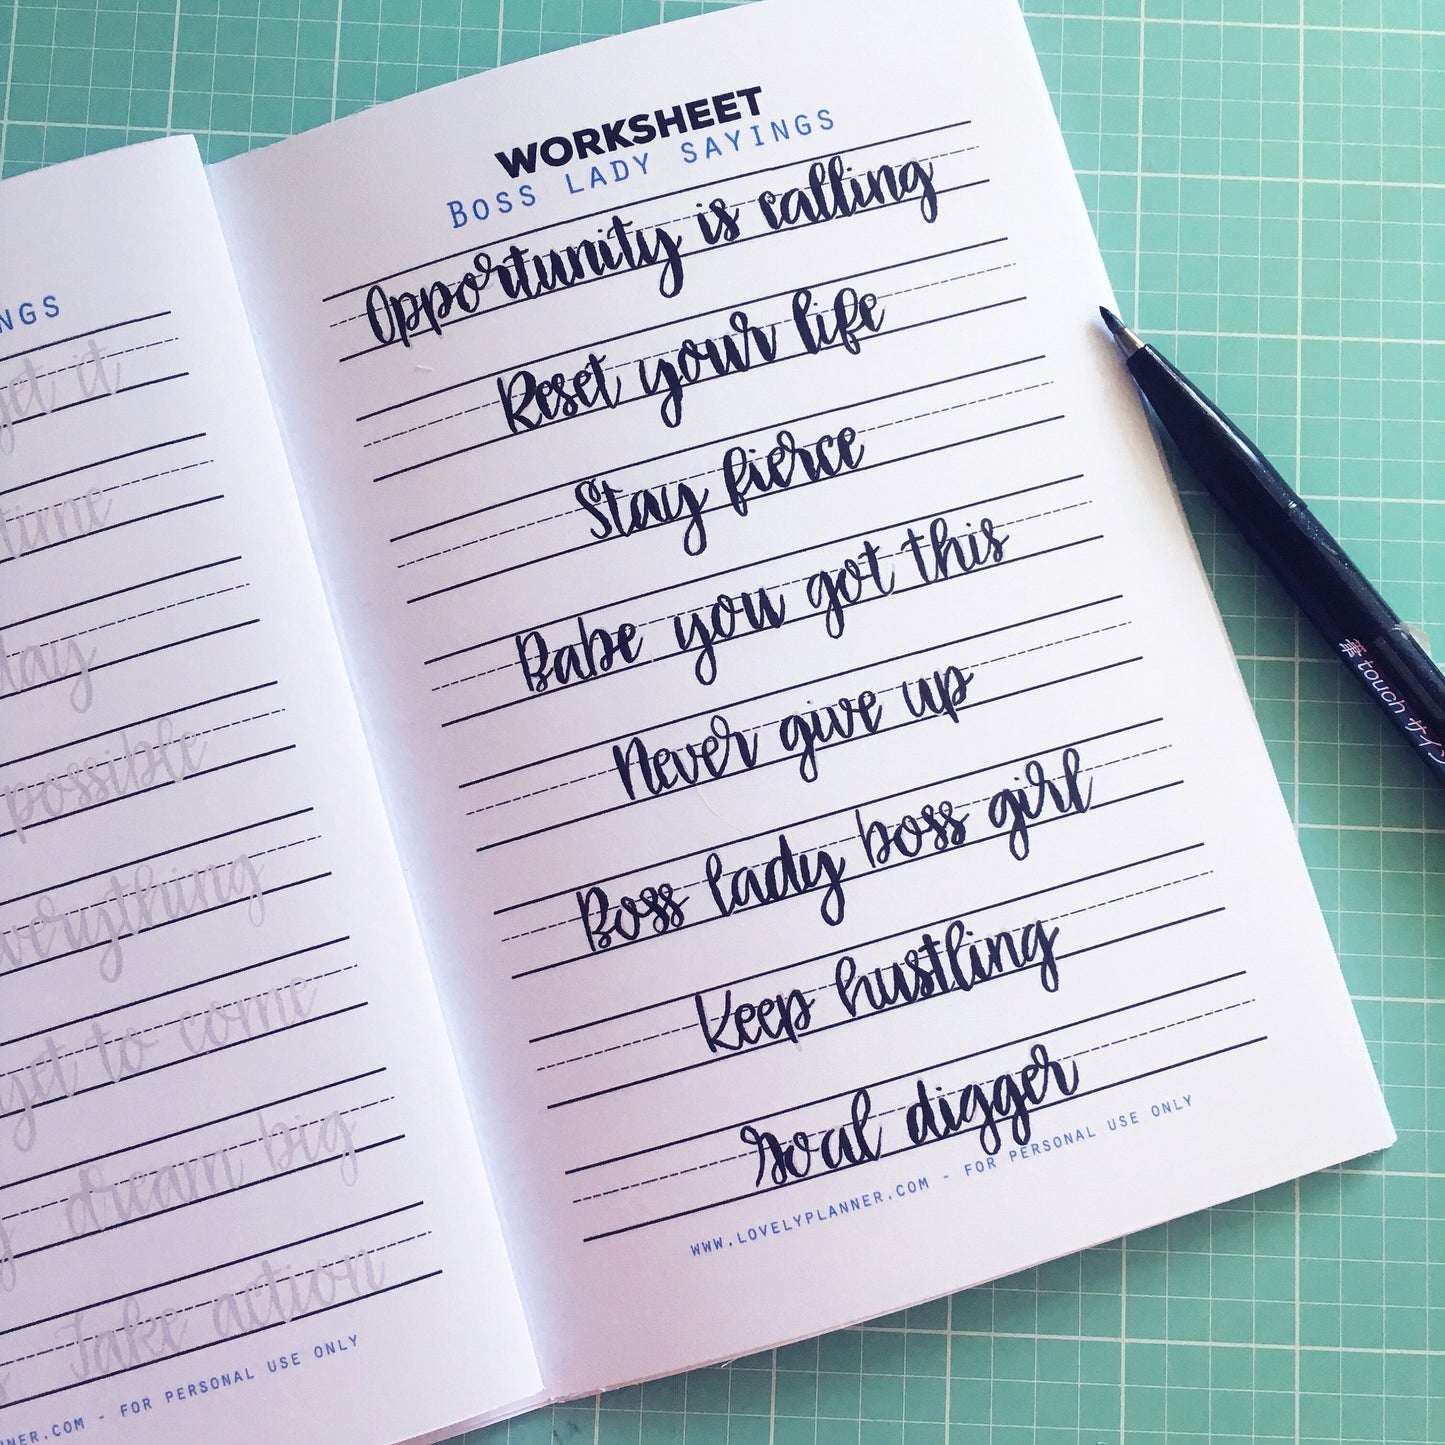 NGS
get it
time
day
possible
everything
yet to come
dream big
Take action
.COM - FOR PERSONAL USE ONLY
WORKSHEET
BOSS LADY SAYINGS
Opportunity is calling
Reset your life
Stay fierce
Babe you got this
Never give up
Boss lady boss girl
Keep hustling
Goal digger
WWW.LOVELYPLANNER.COM - FOR PERSONAL USE ONLY
筆touchサイン